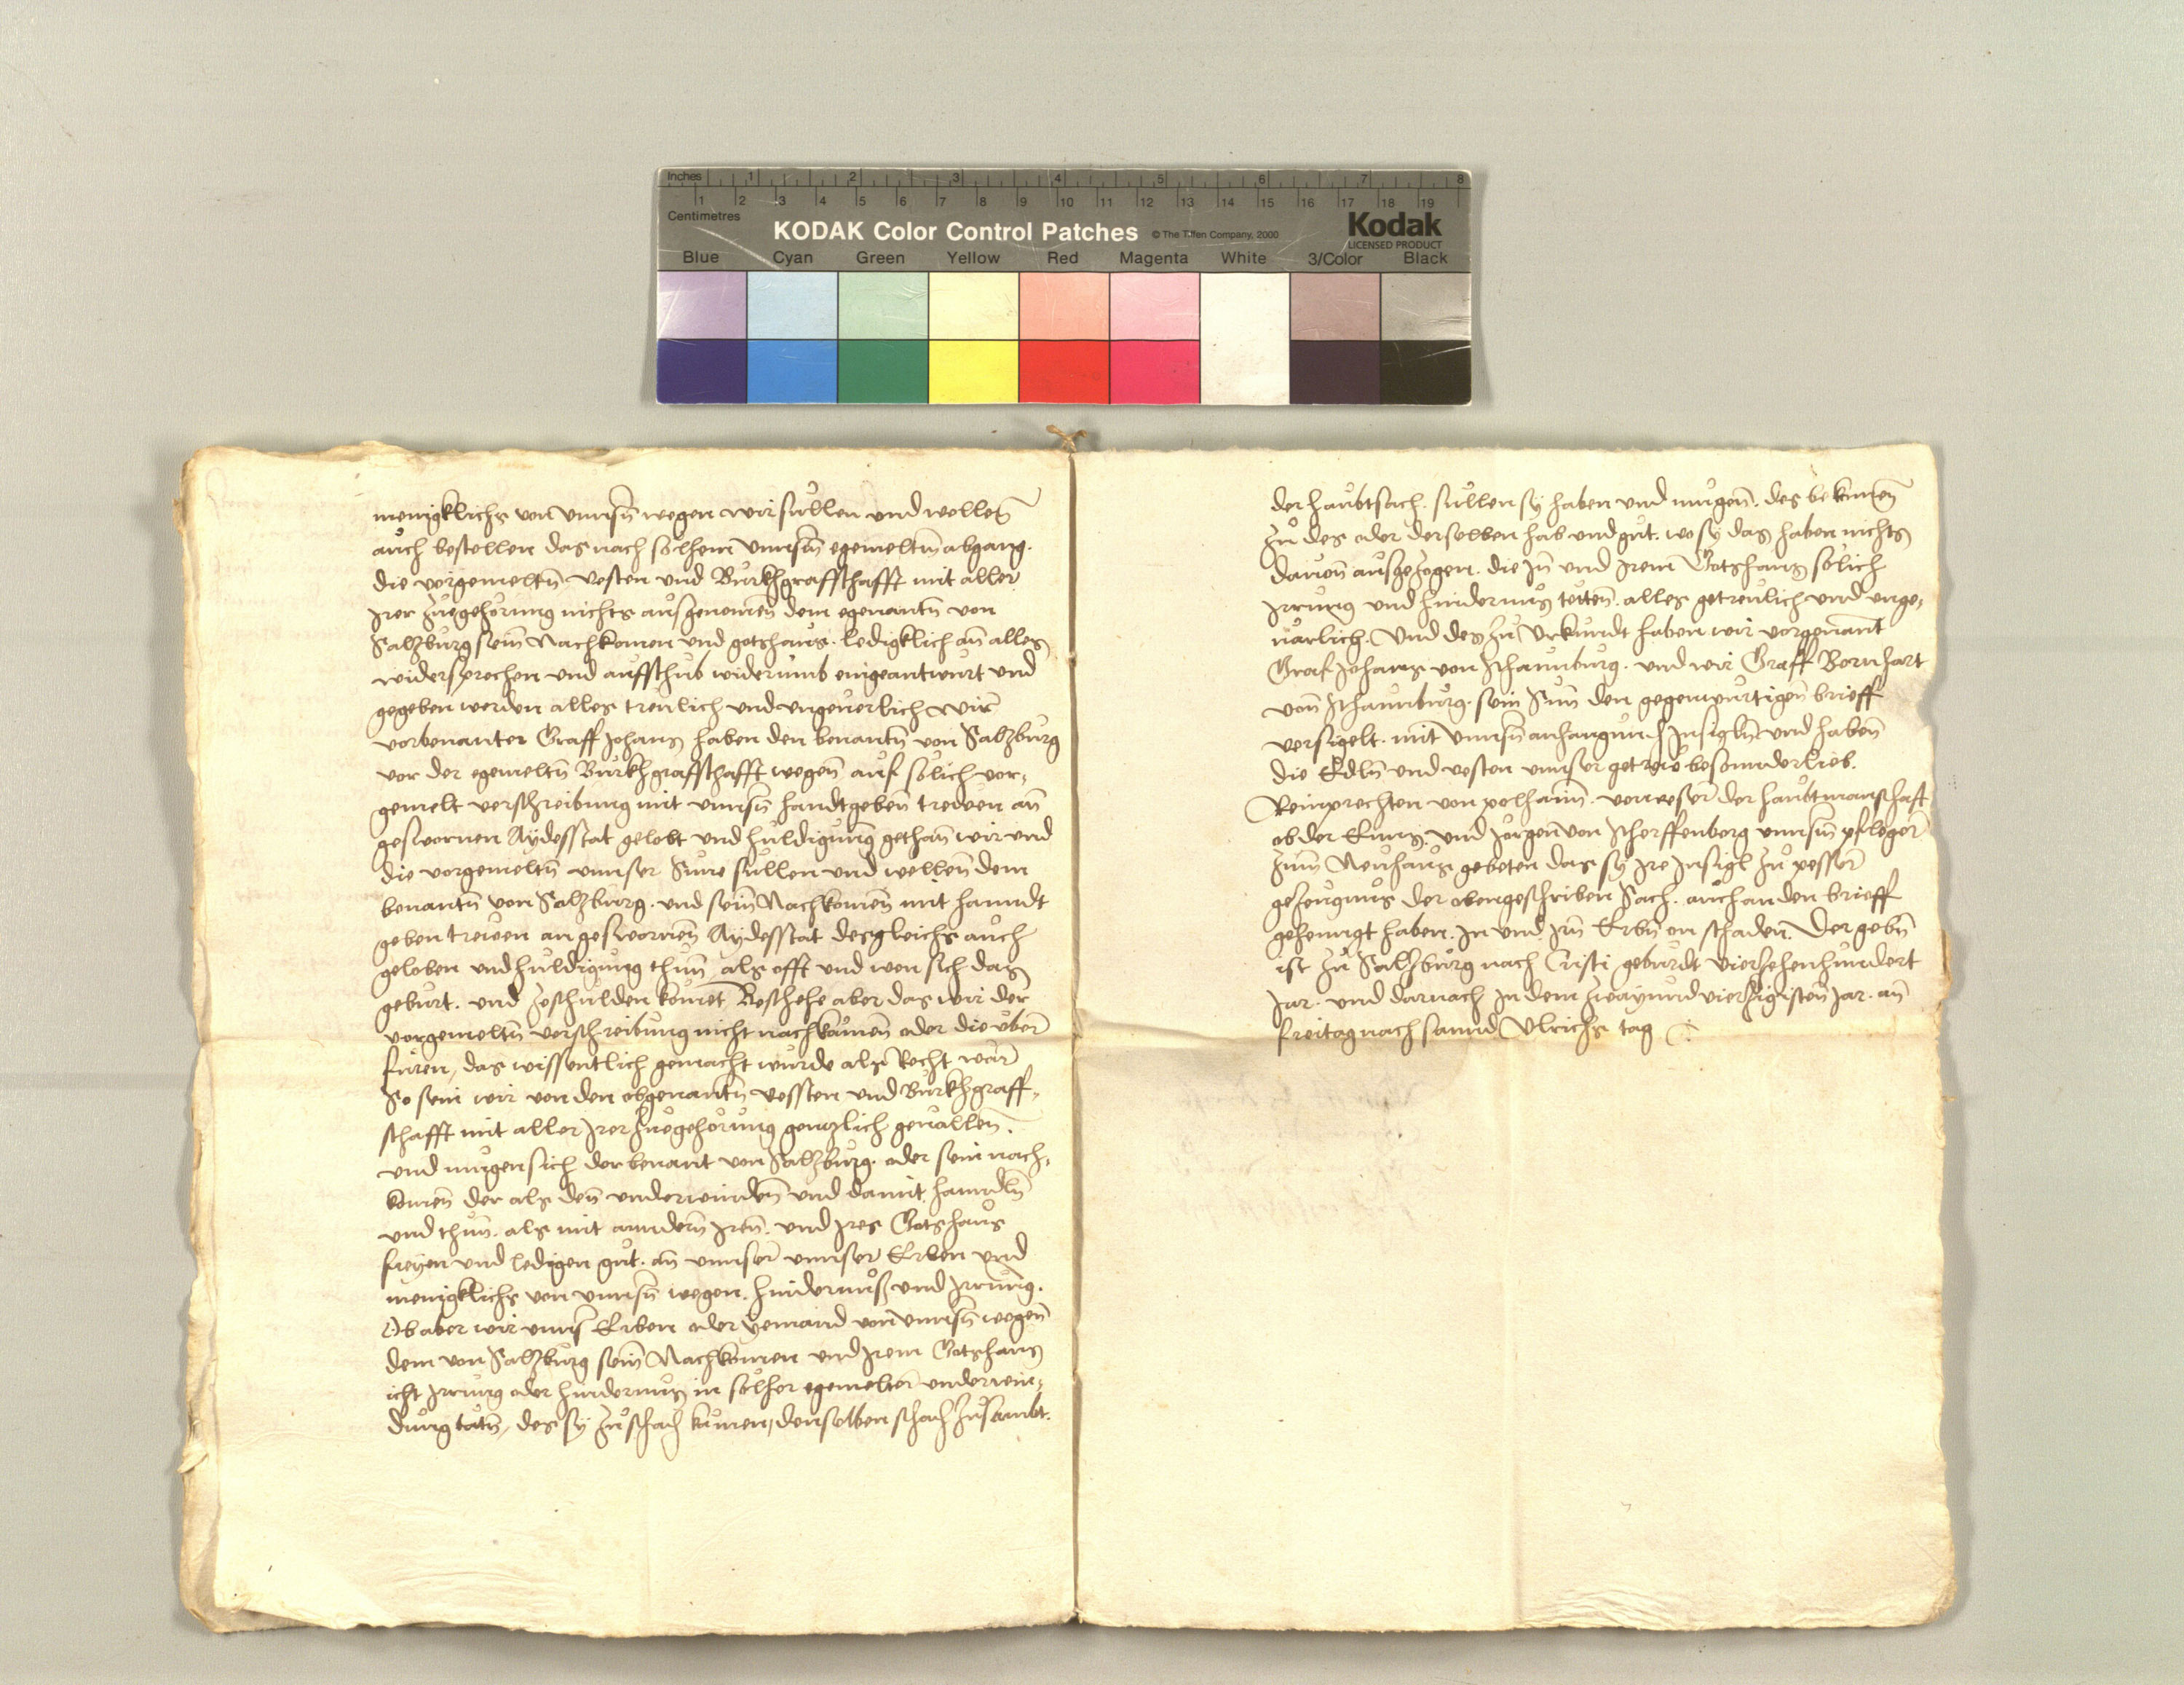 Inches 1 2 3 4 5 6 7 8
1 2 3 4 5 6 7 8 9 10 11 12 13 14 15 16 17 18 19
Centimetres
KODAK Color Control Patches © The Tiffen Company, 2000 Kodak
LICENSED PRODUCT
Blue Cyan Green Yellow Red Magenta White 3/Color Black
menigklichs von unnsñ wegen wir sullen und wellen
auch bestellen das nach solhem unnsm̃ egemeltm̃ abgang.
die vorgemeltñ vesten und Burkhgraffschafft mit aller
Irer zuegehorung nichts ausgenomen dem egenantñ von
Salzburg seiñ Nachkomen und gotshaus. ledigklich añ alles
widersprechen und auffschub widerumb eingeantwurt und
gegeben werden alles treulich und ungeuerlich wir
vorbenanter Graff Johans haben den benantñ von Salzburg
vor der egemeltñ Burkhgraffschafft wegen auf solich vor-
gemelt verschreibung mit unnsñ handtgeben trewen añ
geswornen Aydesstat gelobt und huldigung gethan wir und
die vorgemeltñ unnser Sune sullen und wellen dem
benantñ von Salzburg. und seiñ Nachkomen mit hanndt
geben trewen an geswornen Aydesstat desgleichs auch
geloben und huldigung thun als offt und wen sich das
geburt. und zeschulden kumet Beschehe aber das wir der
vorgemeltñ verschreibung nicht nachkomen oder die uber
furen, das wissentlich gemacht wurde als Recht wär
So sein wir von den obgenantñ vessten und Burkhgraff-
schafft mit aller Irer zuegehorung genczlich geuallen.
und mugen sich der benant von Salzburg. oder sein nach-
komen der als deñ underwinden und damit hanndlñ
und thun. als mit anndern Iren. und Ires Gotshaus
freyen und ledigen gut. añ unnser unnser Erben und
menigklichs von unnsñ wegen. hindernuß und Irrung.
Ob aber wir unnser Erben oder yemand von unnsñ wegen
dem von Salzburg seiñ Nachkomen und Irem Gotshaus
icht Irrung oder hindernus in solher egemelter underwin-
dung tätñ, des sy zu schadñ kumen, denselben schadñ zusambt.
der haubtsach. sullen sy haben und mugen. des bekumen
zu des oder derselben hab und gut. wo sy das haben nichts
dauon ausgezogen. die In und Irem Gotshaus solich
Irrung und hindernus tetten. alles getreulich und unge-
uärlich. Und des zu Urkundt haben wir vorgenant
Graf Johans von Schaunburg. und wir Graff Bernhart
von Schaunburg. sein Sun den gegenwurtigen brieff
versigelt. mit unnsñ anhangunden Insiglñ und haben
die Edlñ und vesten unnser getrew besonnderlieb.
Reinprechten von polhaim. verweser der haubtmanschaft
ob der Enns. und Jorgen von Scherffenberg unnsm̃ pfleger
zum Neuhaus gebeten das sy Ire Insigl zu pesser
gezeugnus der obengeschriben Sach. auch an den brieff
gehenngt haben. In und Iñ Erbñ on schaden. Der gebñ
ist zu Salzburg nach Cristi geburdt vierzehenhundert
Jar. und darnach In dem zwayundvierzigisten Jar. añ
freitag nach sannd Ulrichs tag